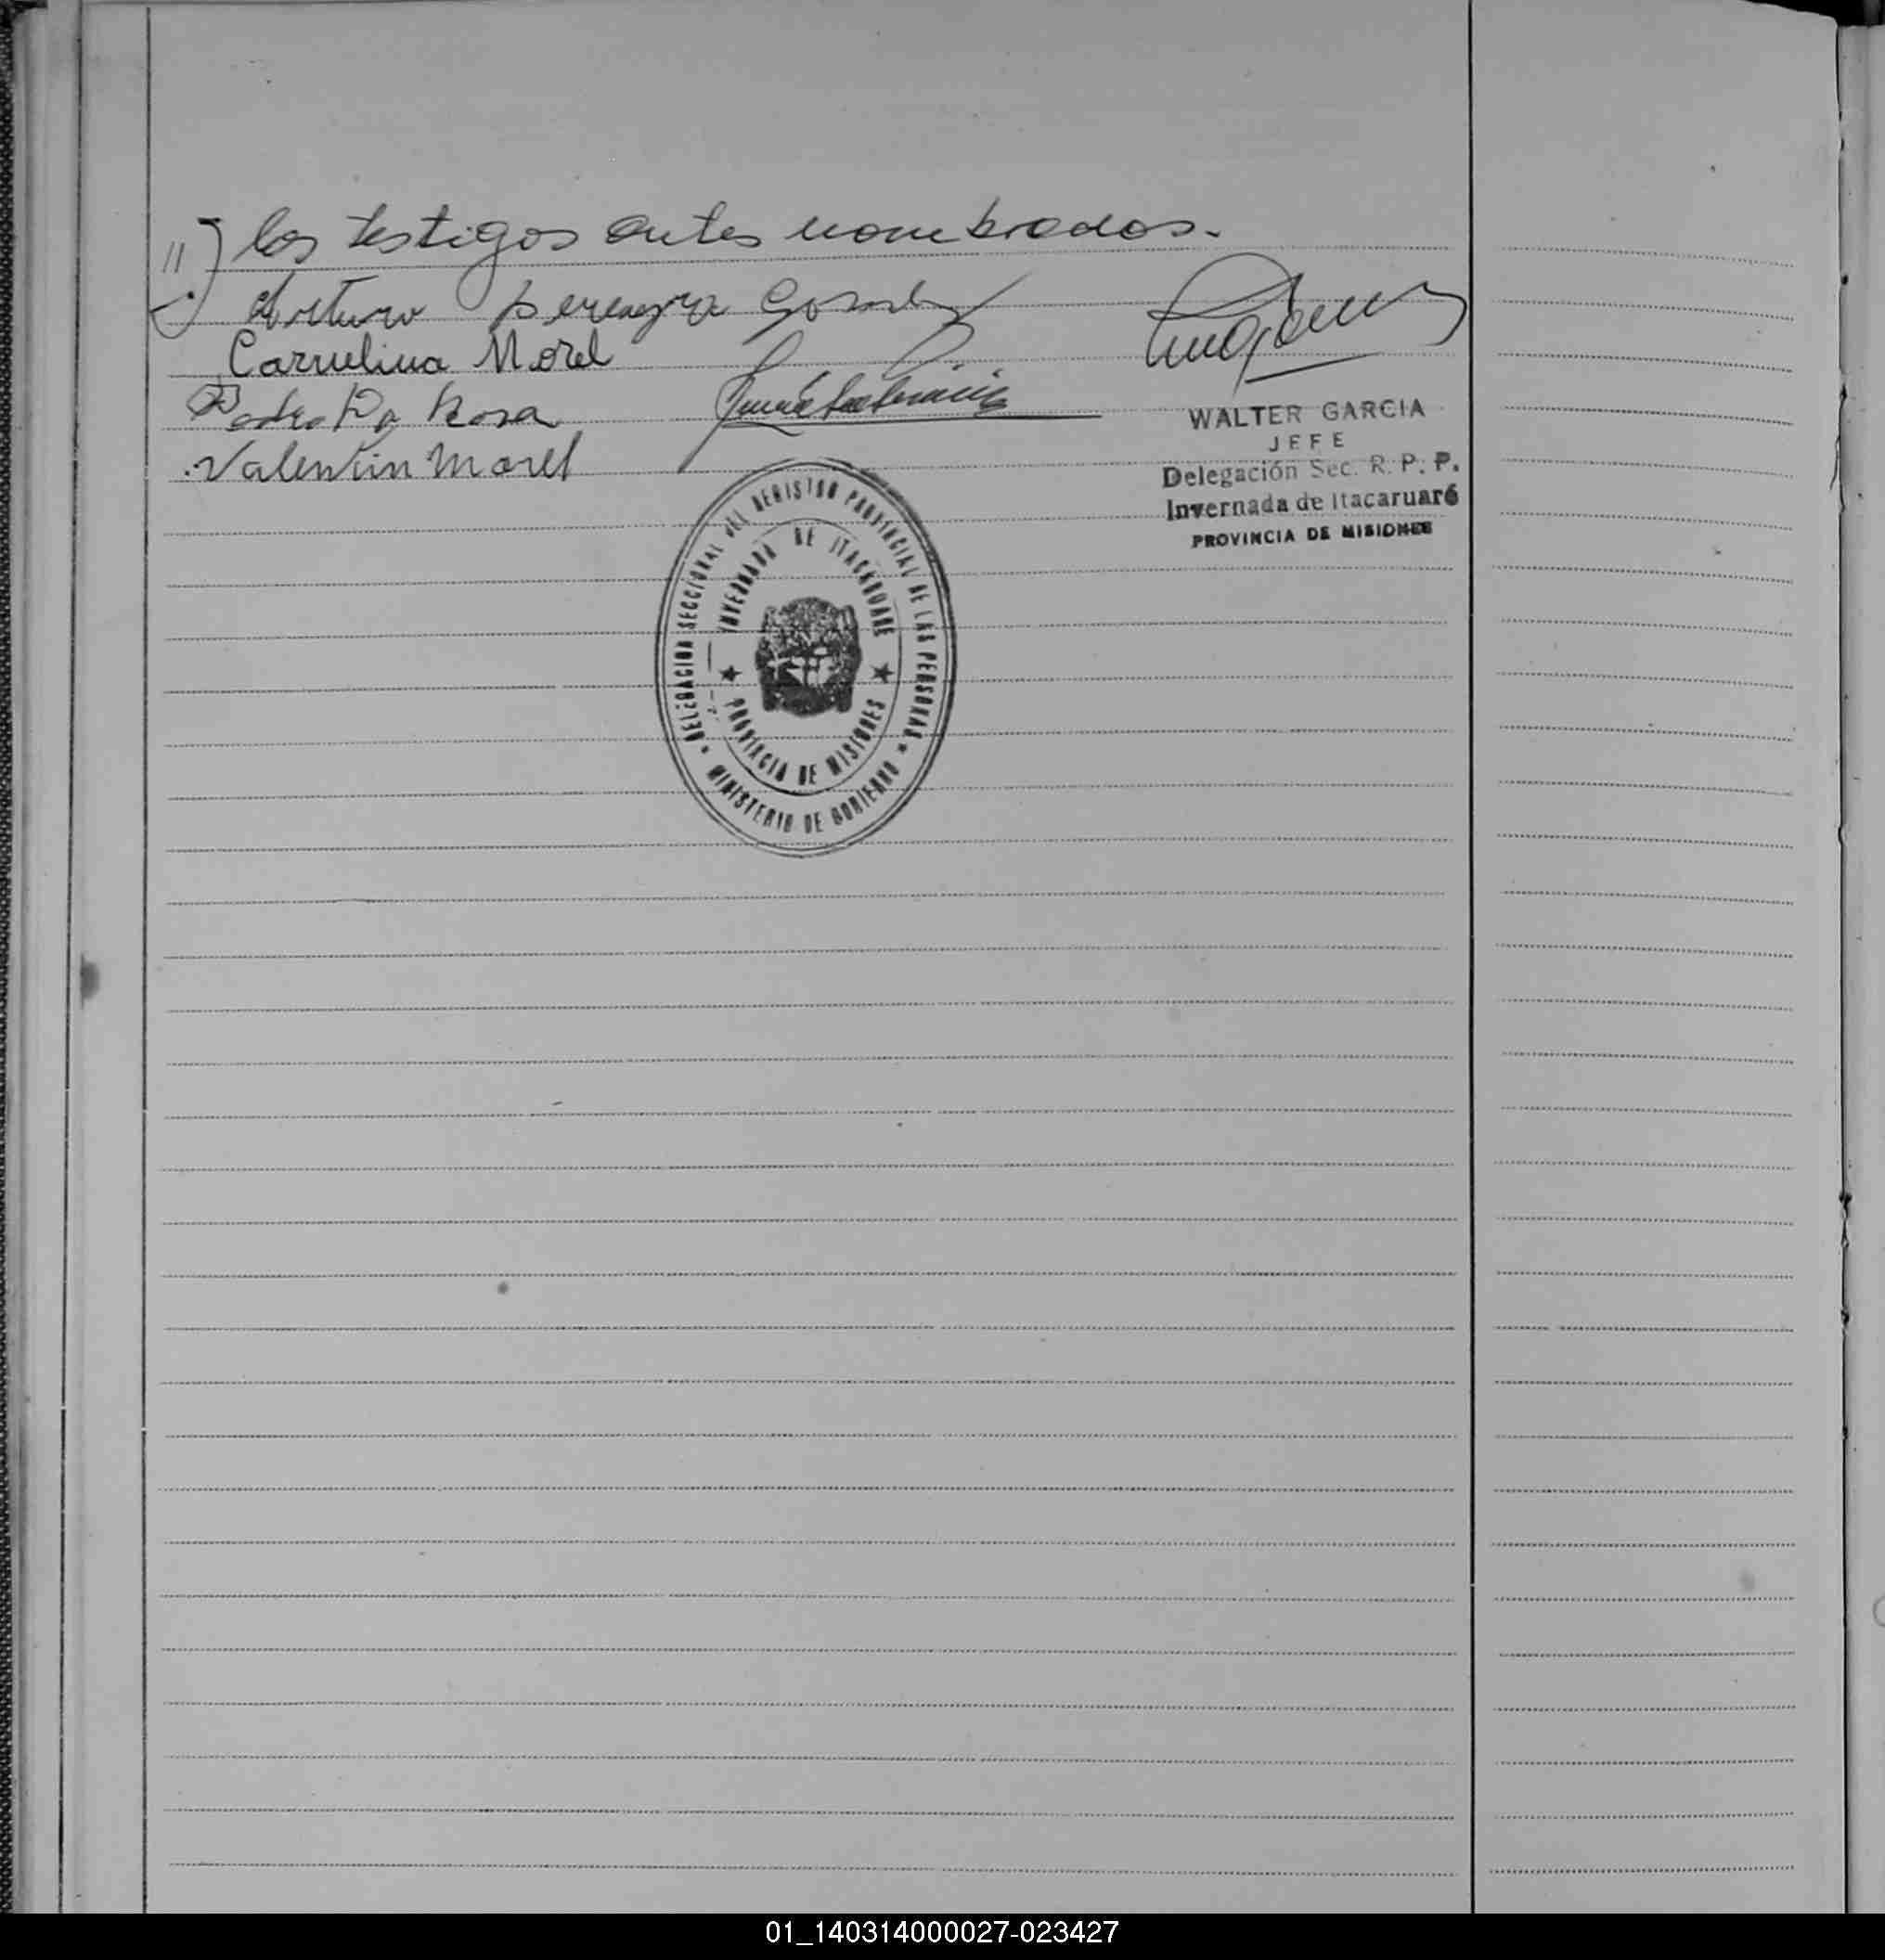 //) los testigos antes nombrados.-
Arturo Pereyra
Carmelina Morel
Pedro Da Rosa
Valentin Morel
WALTER GARCIA
JEFE
Delegación Sec. R. P. P.
Invernada de Itacaruaré
PROVINCIA DE MISIONES
DELEGACION SECCIONAL DEL REGISTRO PROVINCIAL DE LAS PERSONAS
INVERNADA DE ITACARUARE
PROVINCIA DE MISIONES
MINISTERIO DE GOBIERNO
01_140314000027-023427